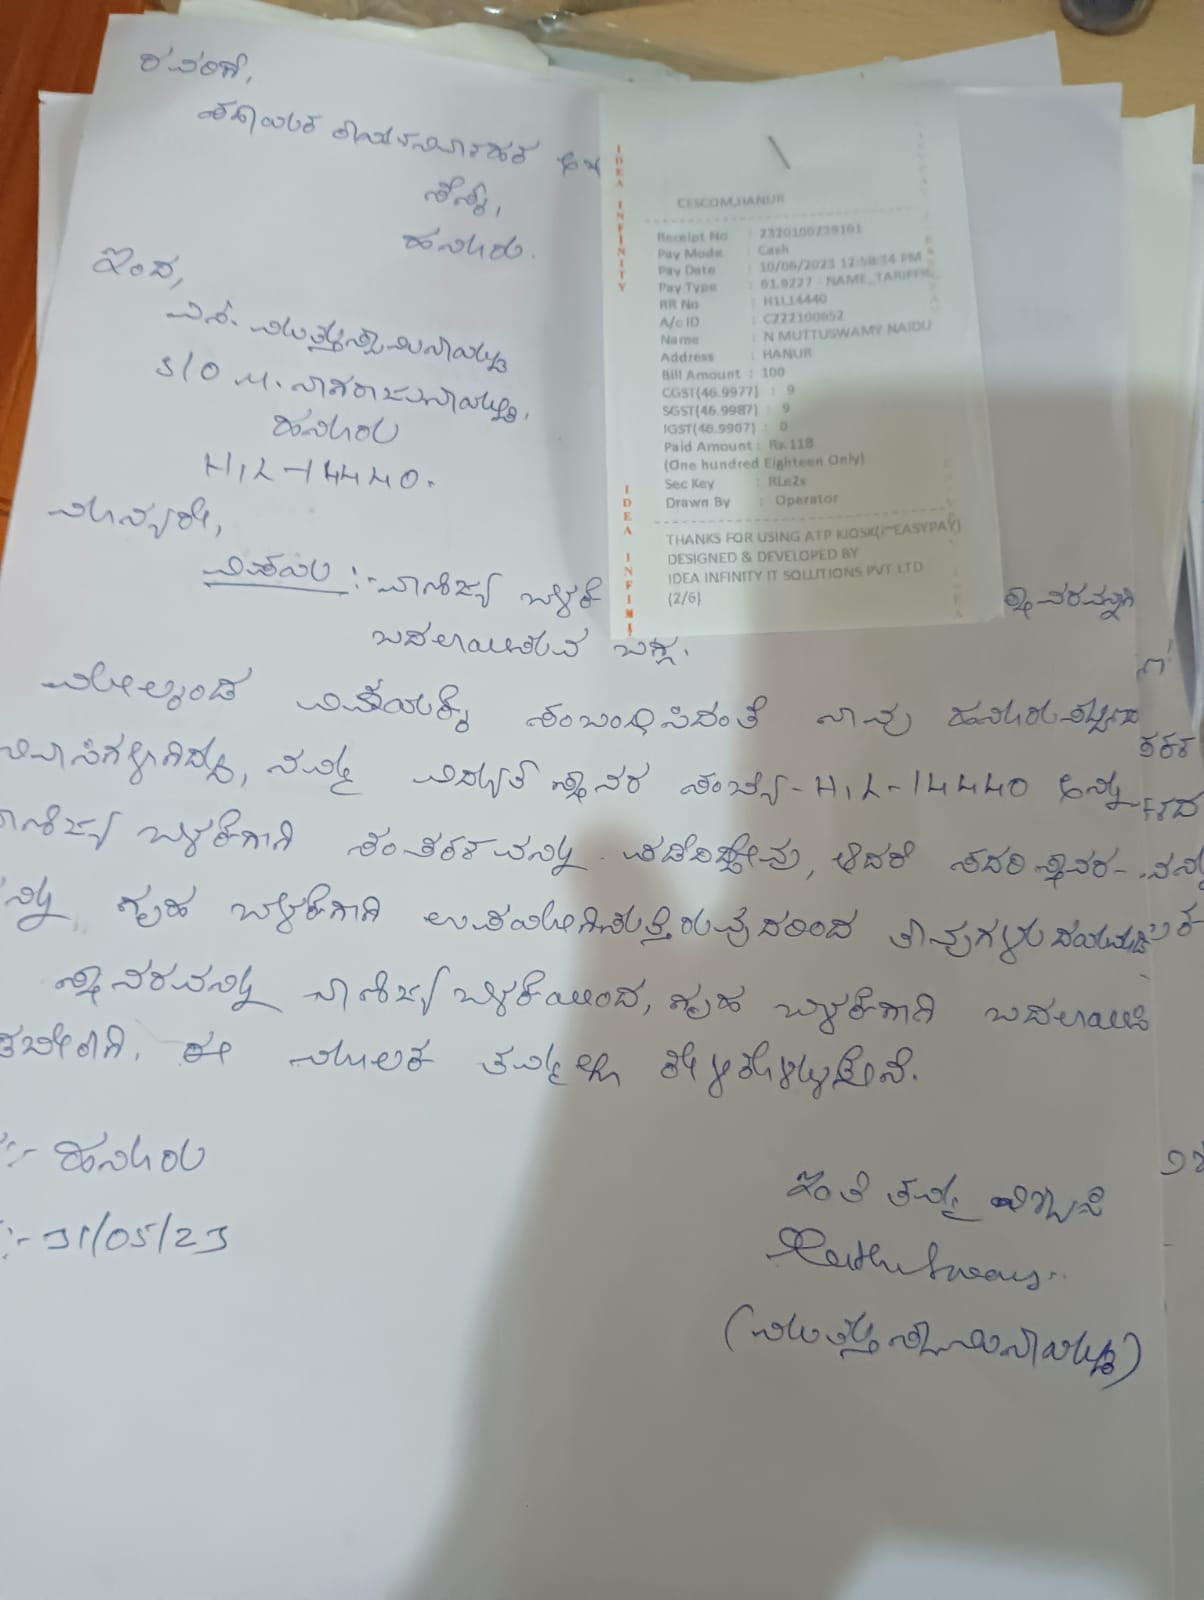 ರವರಿಗೆ,
ಸಹಾಯಕ ಕಾರ್ಯನಿರ್ವಾಹಕ
ಸೆಸ್ಕ್,
ಹನೂರು.
ಇಂದ,
ಎನ್. ಮುತ್ತುಸ್ವಾಮಿನಾಯ್ಡು
S/O M. ನಾಗರಾಜುನಾಯ್ಡು,
ಹನೂರು
H1L-14440.
ಮಾನ್ಯರೇ,
ವಿಷಯ :- ವಾಣಿಜ್ಯ ಬಳಕೆ ಸ್ಥಾವರವನ್ನಾಗಿ
ಬದಲಾಯಿಸುವ ಬಗ್ಗೆ.
ಮೇಲ್ಕಂಡ ವಿಷಯಕ್ಕೆ ಸಂಬಂಧಿಸಿದಂತೆ ನಾವು ಹನೂರು ಪಟ್ಟಣದ
ನಿವಾಸಿಗಳಾಗಿದ್ದು, ನಮ್ಮ ವಿದ್ಯುತ್ ಸ್ಥಾವರ ಸಂಖ್ಯೆ-H1L-14440 ಅನ್ನು
ವಾಣಿಜ್ಯ ಬಳಕೆಗಾಗಿ ಸಂಪರ್ಕವನ್ನು ಪಡೆದಿದ್ದೇವು, ಆದರೆ ಸದರಿ ಸ್ಥಾವರ-
ವನ್ನು ಗೃಹ ಬಳಕೆಗಾಗಿ ಉಪಯೋಗಿಸುತ್ತಿರುವುದರಿಂದ ತಾವುಗಳು ದಯಮಾಡಿ
ಸ್ಥಾವರವನ್ನು ವಾಣಿಜ್ಯ ಬಳಕೆಯಿಂದ, ಗೃಹ ಬಳಕೆಗಾಗಿ ಬದಲಾಯಿಸಿ
ಕೊಡಬೇಕಾಗಿ, ಈ ಮೂಲಕ ತಮ್ಮಲ್ಲಿ ಕೇಳಿಕೊಳ್ಳುತ್ತೇನೆ.
:- ಹನೂರು
:- 31/05/23
ಇಂತಿ ತಮ್ಮ ವಿಶ್ವಾಸಿ
Muthuswamy
(ಮುತ್ತುಸ್ವಾಮಿನಾಯ್ಡು)
IDEA INFINITY
IDEA INFINI
CESCOM,HANUR
Receipt No : 2320100239101
Pay Mode : Cash
Pay Date : 10/06/2023 12:58:14 PM
Pay Type : 61.9227 - NAME_TARIFF
RR No : H1L14440
A/c ID : C222100652
Name : N MUTTUSWAMY NAIDU
Address : HANUR
Bill Amount : 100
CGST(46.9977) : 9
SGST(46.9987) : 9
IGST(46.9967) : 0
Paid Amount : Rs.118
(One hundred Eighteen Only)
Sec Key : RLe2s
Drawn By : Operator
THANKS FOR USING ATP KIOSK(i~EASYPAY)
DESIGNED & DEVELOPED BY
IDEA INFINITY IT SOLUTIONS PVT LTD
(2/6)